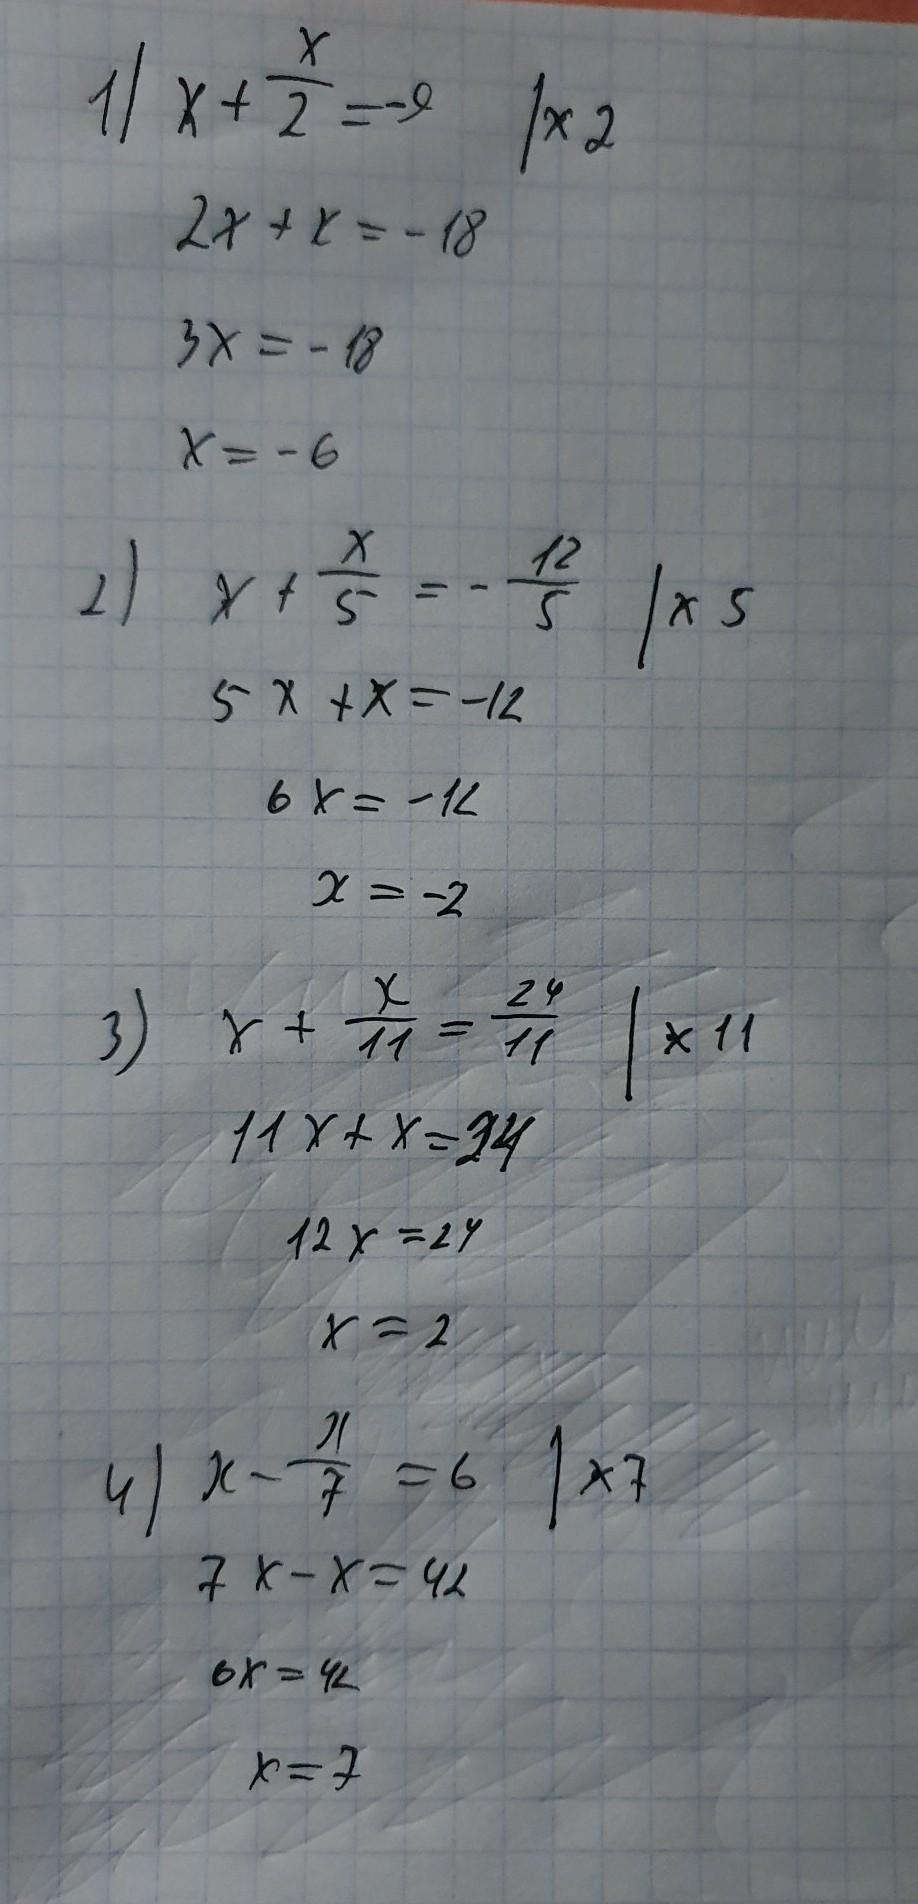 1) x + x/2 = -9 | x 2
2x + x = -18
3x = -18
x = -6
2) x + x/5 = - 12/5 | x 5
5x + x = -12
6x = -12
x = -2
3) x + x/11 = 24/11 | x 11
11x + x = 24
12x = 24
x = 2
4) x - x/7 = 6 | x 7
7x - x = 42
6x = 42
x = 7